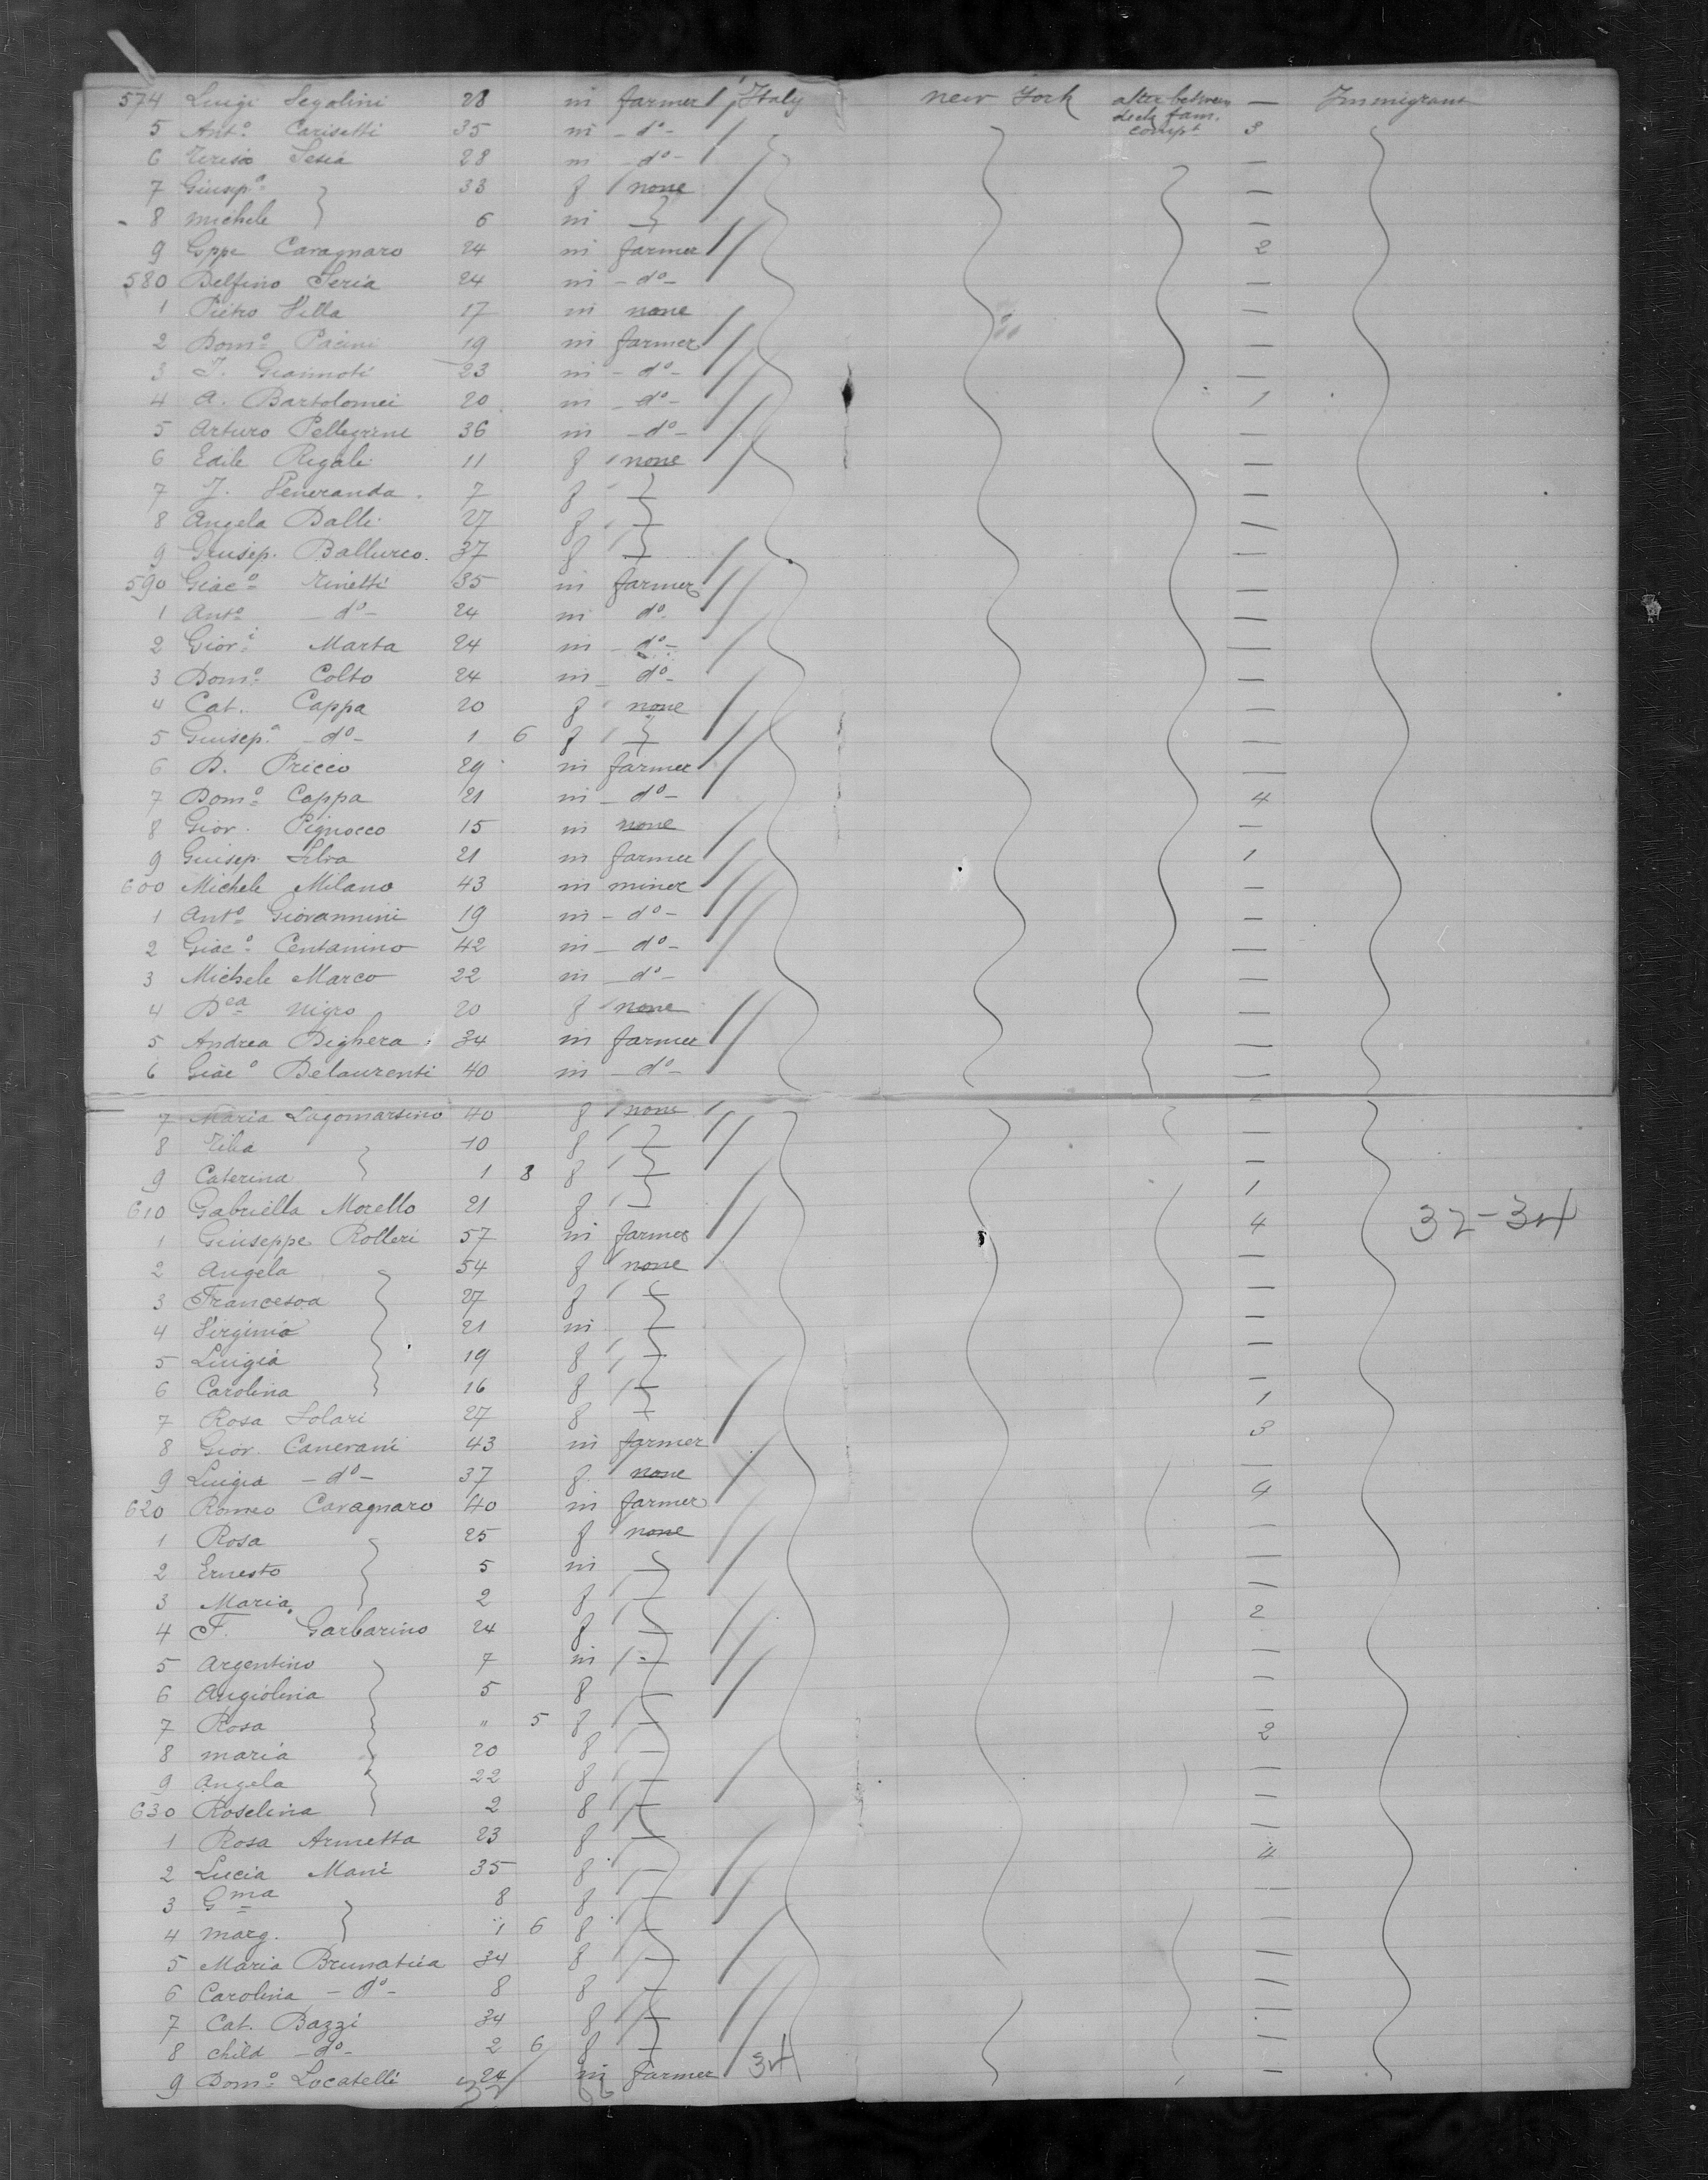 574 Luigi Segolini 28 m farmer Italy New York after between deck fam. compt — Immigrant
5 Anto Carisetti 35 m - do - 3
6 Sesia 28 m - do - —
7 Giuspa 33 f none —
8 Michele 6 m —
9 Gppe Cavagnaro 24 m farmer 2
580 Delfino Seria 24 m - do - —
1 Pietro Villa 17 m none —
2 Domo Pacini 19 m farmer —
3 Giannoti 23 m - do - —
4 A. Bartolomei 20 m - do - 1
5 Arturo Pellegrini 36 m - do - —
6 Edile Rigali 11 f none —
7 J. Veneranda 7 f —
8 Angela Dalli 27 f —
9 Giusep. Ballurco 37 f —
590 Giaco Rinetti 35 m farmer —
1 Anto - do - 24 m do —
2 Giovi Marta 24 m - do - —
3 Domo Colto 24 m - do - —
4 Cat. Cappa 20 f none —
5 Giusepa - do - 1 6 f —
6 D. Pricco 29 m farmer —
7 Domo Cappa 21 m - do - 4
8 Giov. Pignocco 15 m none —
9 Giusep. Silva 21 m farmer 1
600 Michele Milano 43 m miner —
1 Anto Giovannini 19 m - do - —
2 Giaco Centanino 42 m - do - —
3 Michele Marco 22 m - do - —
4 Dca Nigro 20 f none —
5 Andrea Dighera 34 m farmer —
6 Giaco Delaurenti 40 m - do - —
7 Maria Lagomarsino 40 f none —
8 10 f —
9 Caterina 1 8 f —
610 Gabriella Morello 21 f 1
1 Giuseppe Rolleri 57 m farmer 4 32-34
2 Angela 54 f none —
3 Francesca 27 f —
4 Virginia 21 m —
5 Luigia 19 f —
6 Carolina 16 f —
7 Rosa Solari 27 f 1
8 Giov. Canevani 43 m farmer 3
9 Luigia - do - 37 f none —
620 Romeo Cavagnaro 40 m farmer 4
1 Rosa 25 f none —
2 Ernesto 5 m —
3 Maria 2 f —
4 F. Garbarino 24 f 2
5 Argentino 7 m —
6 Angiolina 5 f —
7 Rosa " 5 f —
8 Maria 20 f 2
9 Angela 22 f —
630 Roselina 2 f —
1 Rosa Armetta 23 f —
2 Lucia Mani 35 f 4
3 Gma 8 f —
4 Marg. 1 6 f —
5 Maria Brunatica 34 f —
6 Carolina - do - 8 f —
7 Cat. Bazzi 34 f —
8 child - do - 2 6 f —
9 Domo Locatelli 24 m farmer 34 —